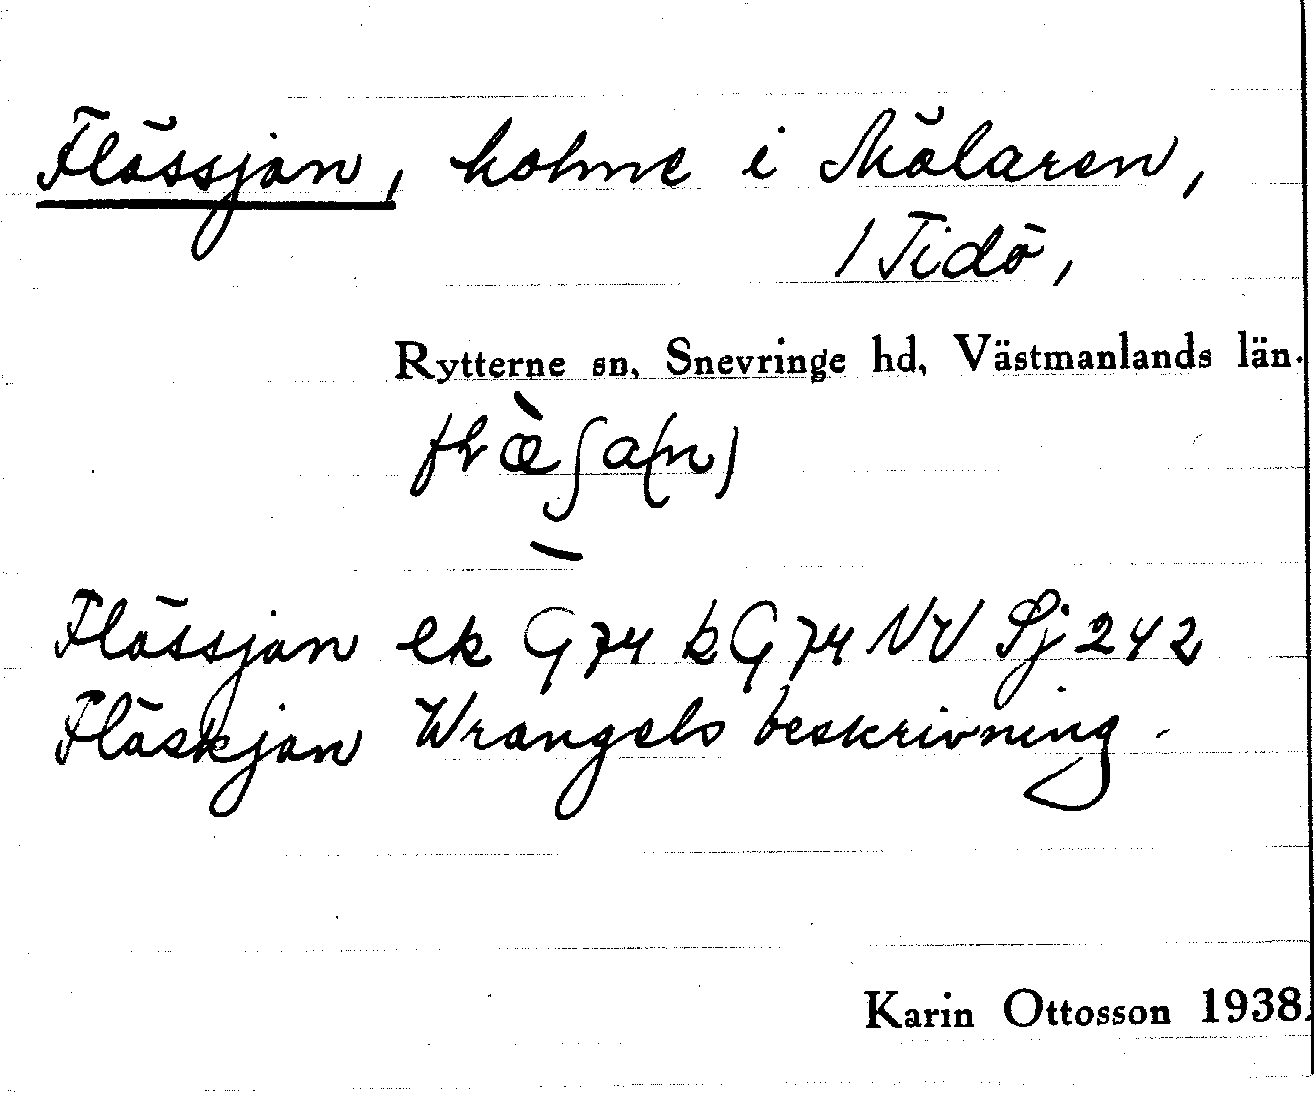 Flässjan, holme i Mälaren,
/ Tidö,
Rytterne sn, Snevringe hd, Västmanlands län.
Flässjan ek G74 k G74 NV Sj 242
Fläskjan Wrangels beskrivning.
Karin Ottosson 1938.